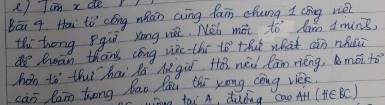 e) Tìm x để P
Bài 4 Hai tổ công nhân cùng làm chung 1 công nô
thì trong 8 giờ xong nốt. Nếu mỗi tổ làm 1 mình
để hoàn thành công việc thì tổ thứ nhất cần nhiều
hơn tổ thứ hai là 12 giờ Hỏi nếu làm riêng, mỗi tổ
cần làm trong bao lâu thì xong công việc
vuông tại A, đường cao AH (H∈BC)